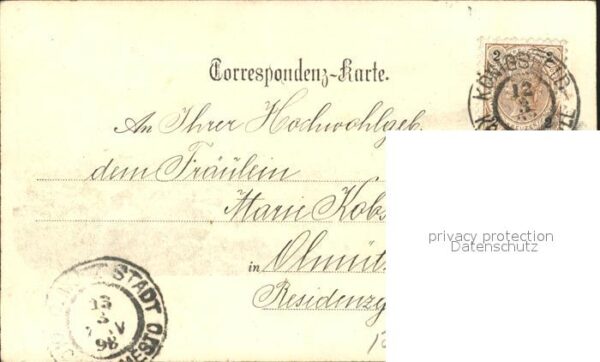 Correspondenz-Karte.
2
KÖNIGSFELD
12
3
An Ihrer Hochwohlgeb.
dem Fräulein
Marie Kobs
privacy protection
Datenschutz
in Olmüt
Residenzg
STADT
MESTO
13
3
V
98